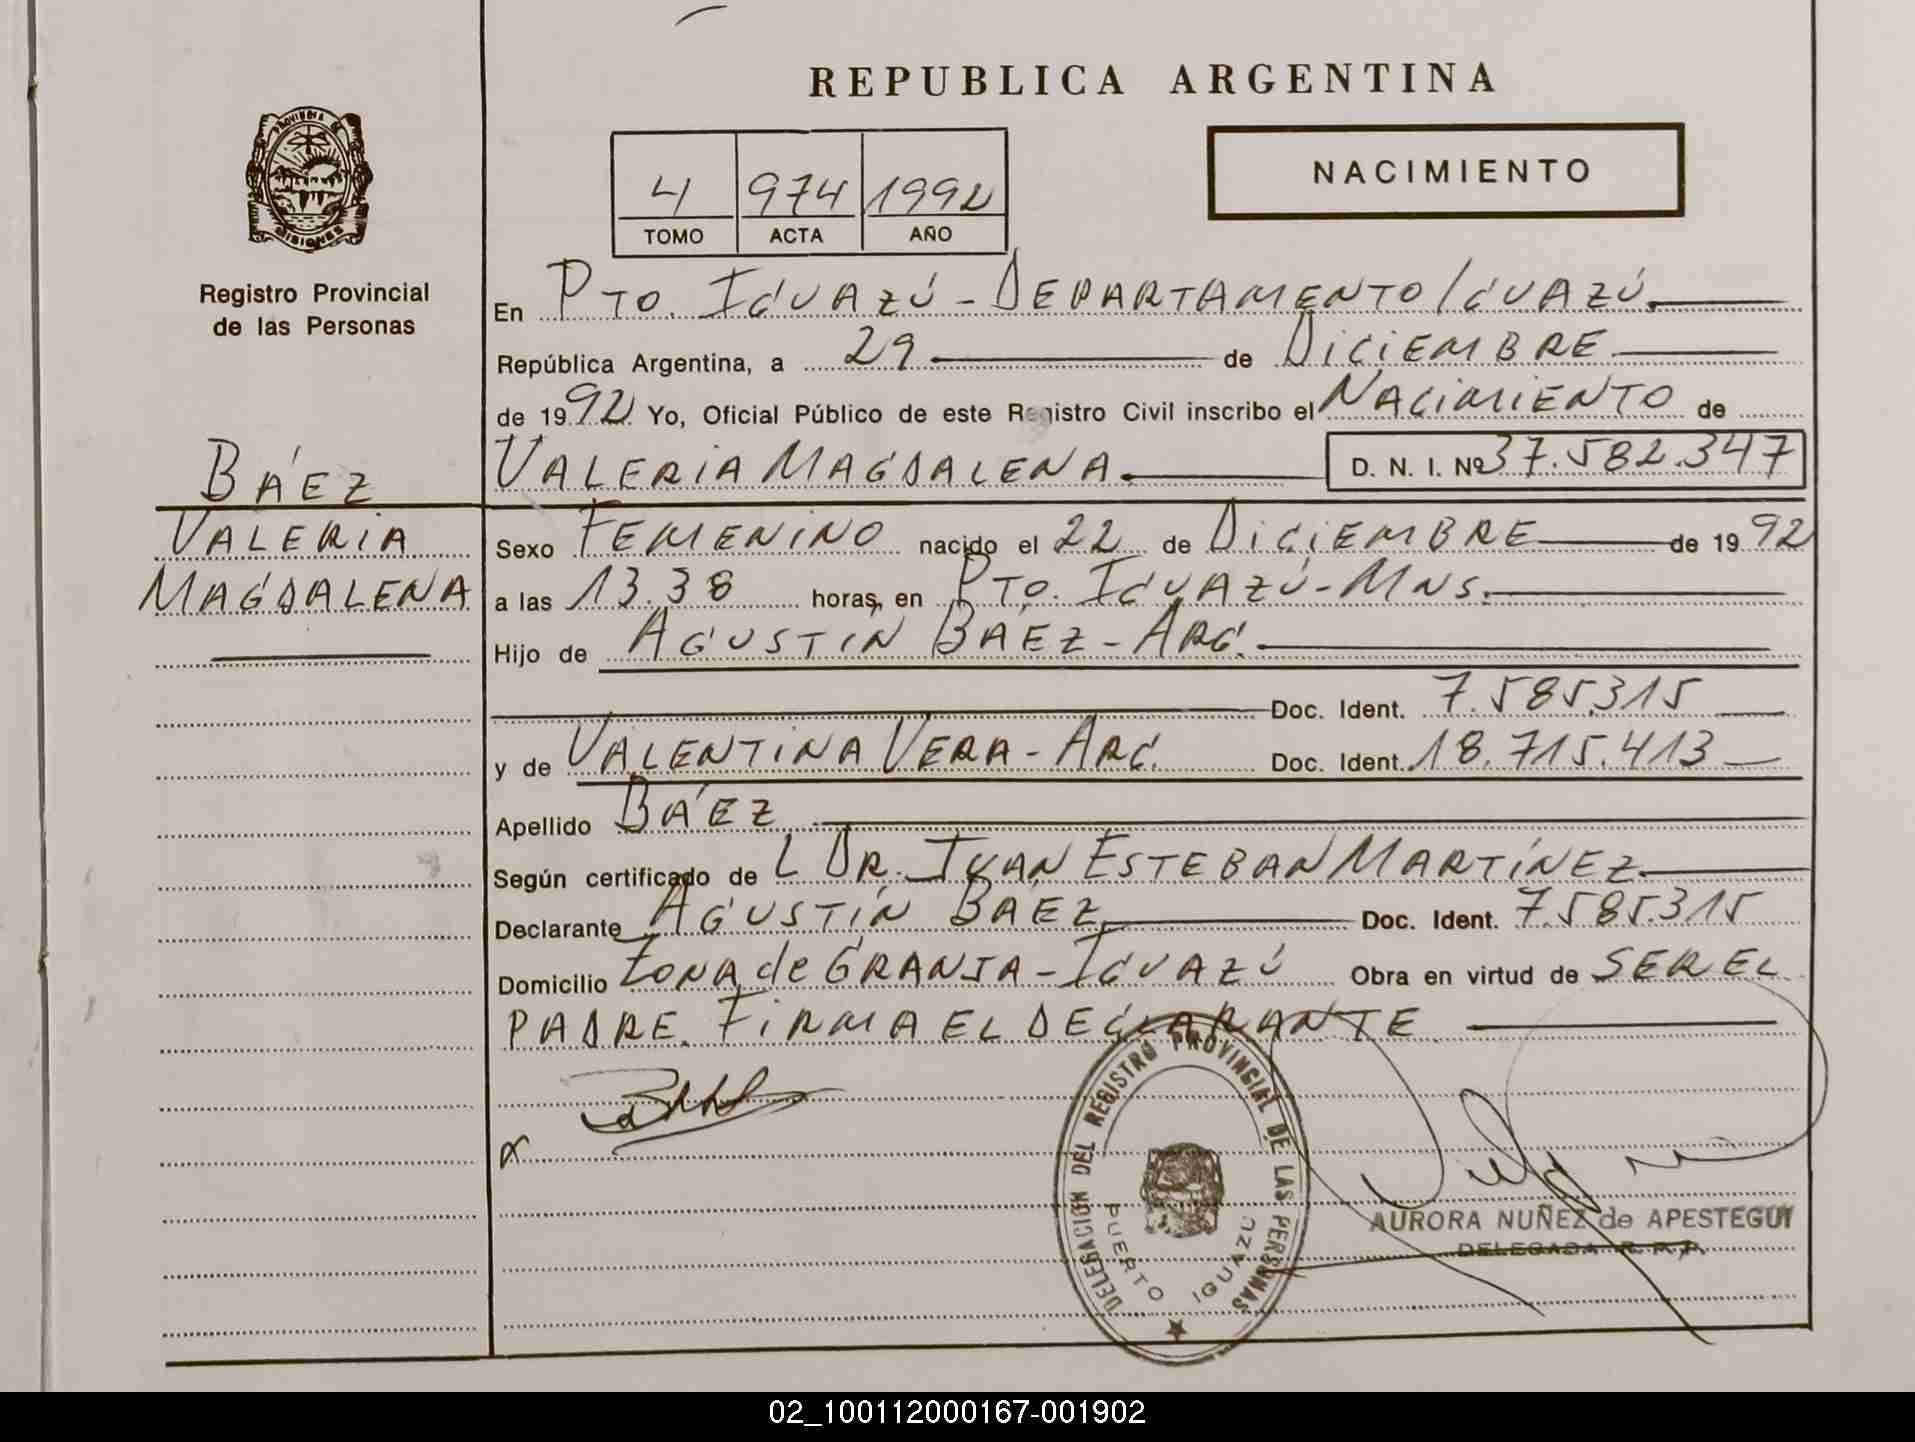 REPUBLICA ARGENTINA
PROVINCIA DE
MISIONES
Registro Provincial
de las Personas
4 974 1992
TOMO ACTA AÑO
NACIMIENTO
En PTO. IGUAZÚ - DEPARTAMENTO IGUAZÚ.
República Argentina, a 29 de DICIEMBRE
de 1992 Yo, Oficial Público de este Registro Civil inscribo el NACIMIENTO de
VALERIA MAGDALENA. D. N. I. Nº 37.582.347
BÁEZ
VALERIA
MAGDALENA
Sexo FEMENINO nacido el 22 de DICIEMBRE de 1992
a las 13.38 horas, en PTO. IGUAZÚ - MNS.
Hijo de AGUSTÍN BÁEZ - ARG.
Doc. Ident. 7.585.315
y de VALENTINA VERA - ARG. Doc. Ident. 18.715.413
Apellido BÁEZ
Según certificado de L DR. JUAN ESTEBAN MARTÍNEZ
Declarante AGUSTÍN BÁEZ Doc. Ident. 7.585.315
Domicilio ZONA de GRANJA - IGUAZÚ Obra en virtud de SER EL
PADRE. FIRMA EL DECLARANTE
DELEGACION DEL REGISTRO PROVINCIAL DE LAS PERSONAS
PUERTO IGUAZU
AURORA NUÑEZ de APESTEGUI
DELEGADA R.P.P.
02_100112000167-001902